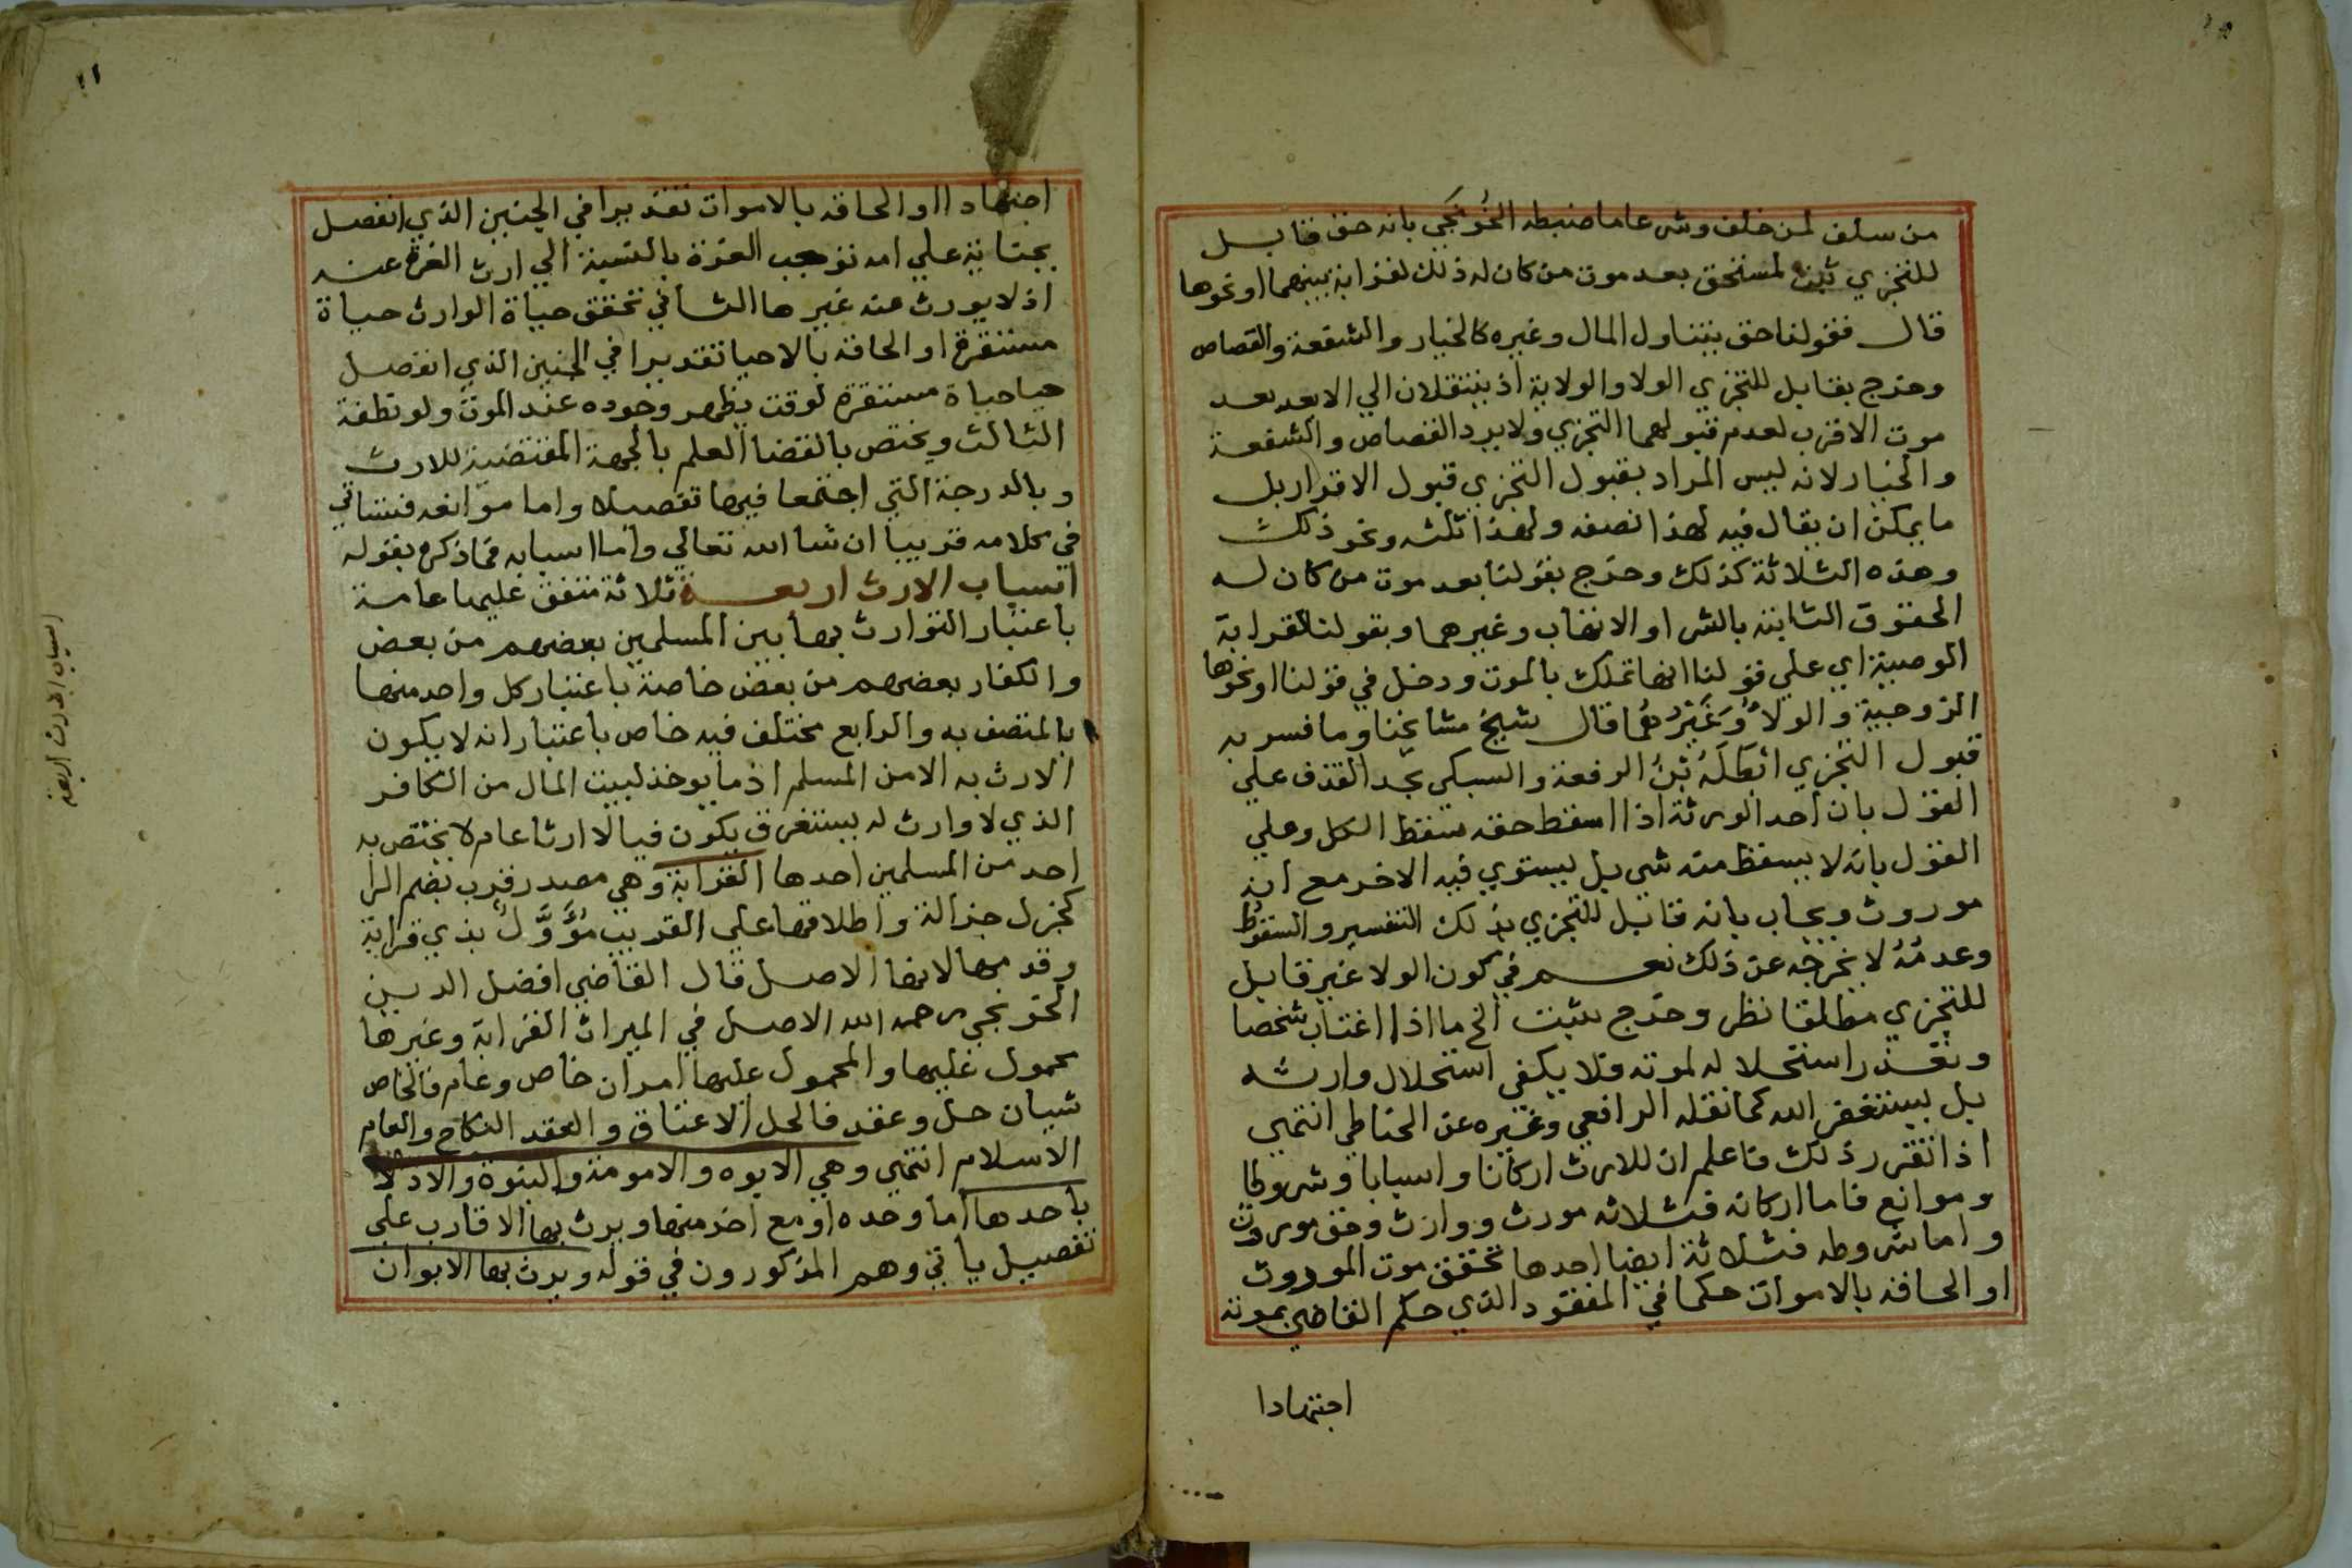 من سلف لمن خلف وشرعا ما ضبطه الخُونَجي بانه حق قابل
للتجزي ثبت لمستحق بعد موت من كان له ذلك لقرابة بينهما او نحوها
قال فقولنا حق يتناول المال وغيره كالخيار والشفعة والقصاص
وخرج بقابل للتجزي الولا والولاية اذ ينتقلان الي الابعد بعد
موت الاقرب لعدم قبولهما التجزي ولا يرد القصاص والشفعة
والخيار لانه ليس المراد بقبول التجزي قبول الاقرار بل
ما يمكن ان يقال فيه لهذا نصفه ولهذا ثلثه ونحو ذلك
وهذه الثلاثة كذلك وخرج بقولنا بعد موت من كان له
الحقوق الثابتة بالشرا والاتهاب وغيرهما وبقولنا لقرابة
الوصية اي علي قولنا انها تملك بالموت ودخل في قولنا او نحوها
الزوجية والولاُ وَغَيْرُ هُما قال شيخ مشايخنا وما فسر به
قبول التجزي ابْطَلَهُ بْنُ الرفعة والسبكي بحد القذف علي
القول بان احد الورثة اذا اسقط حقه سقط الكل وعلي
القول بانه لا يسقط منه شي بل يستوي فيه الاخر مع انه
موروث ويجاب بانه قابل للتجزي بذلك التفسير والسقوط
وعدمُهُ لا يخرجه عن ذلك نعم في كون الولا غير قابل
للتجزي مطلقا نظر وخرج بثبت الخ ما اذا اغتاب شخصا
وتعذر استحلاله لموته فلا يكفي استحلال وارثه
بل يستغفر الله كما نقله الرافعي وغيره عن الحناطي انتهي
اذا تقرر ذلك فاعلم ان للارث اركانا واسبابا وشروطا
وموانع فاما اركانه فثلاثه مورث ووارث وحق موروث
واما شروطه فثلاثة ايضا احدها تحقق موت المورث
او الحاقه بالاموات حكما في المفقود الذي حكم القاضي بموته
اجتهادا
١١
اجتهادا او الحاقه بالاموات تقديرا في الجنين الذي انفصل
بجناية علي امه توجب الغرة بالنسبة الي ارث الغرة عنه
اذ لا يورث عنه غيرها الثاني تحقق حياة الوارث حياة
مستقرة او الحاقه بالاحيا تقديرا في الجنين الذي انفصل
حيا حياة مستقرة لوقت يظهر وجوده عند الموت ولو نطفة
الثالث ويختص بالقضا العلم بالجهة المقتضية للارث
وبالدرجة التي اجتمعا فيها تفصيلا واما موانعه فستاتي
في كلامه قريبا ان شا الله تعالي واما اسبابه فما ذكره بقوله
اسباب الارث اربعة ثلاثة متفق عليها عامة
باعتبار التوارث بها بين المسلمين بعضهم من بعض
والكفار بعضهم من بعض خاصة باعتبار كل واحد منها
بالمتصف به والرابع مختلف فيه خاص باعتبار انه لا يكون
الارث به الا من المسلم اذ ما يوخذ لبيت المال من الكافر
الذي لا وارث له يستغرق يكون فيا لا ارثا عام لا يختص به
احد من المسلمين احدها القرابة وهي مصدر قرب بضم الرا
كجزل جزالة واطلاقها علي القريب مُؤَوَّلٌ بذي قرابة
وقدمها لانها الاصل قال القاضي افضل الدين
الخونجي رحمه الله الاصل في الميراث القرابة وغيرها
محمول عليها والمحمول عليها امران خاص وعام فالخاص
شيان حل وعقد فالحل الاعتاق والعقد النكاح والعام
الاسلام انتهي وهي الابوه والامومة والبنوة والادلا
باحدها اما وحده او مع اخر منها ويرث بها الاقارب علي
تفصيل ياتي وهم المذكورون في قوله ويرث بها الابوان
اسباب الارث اربعة